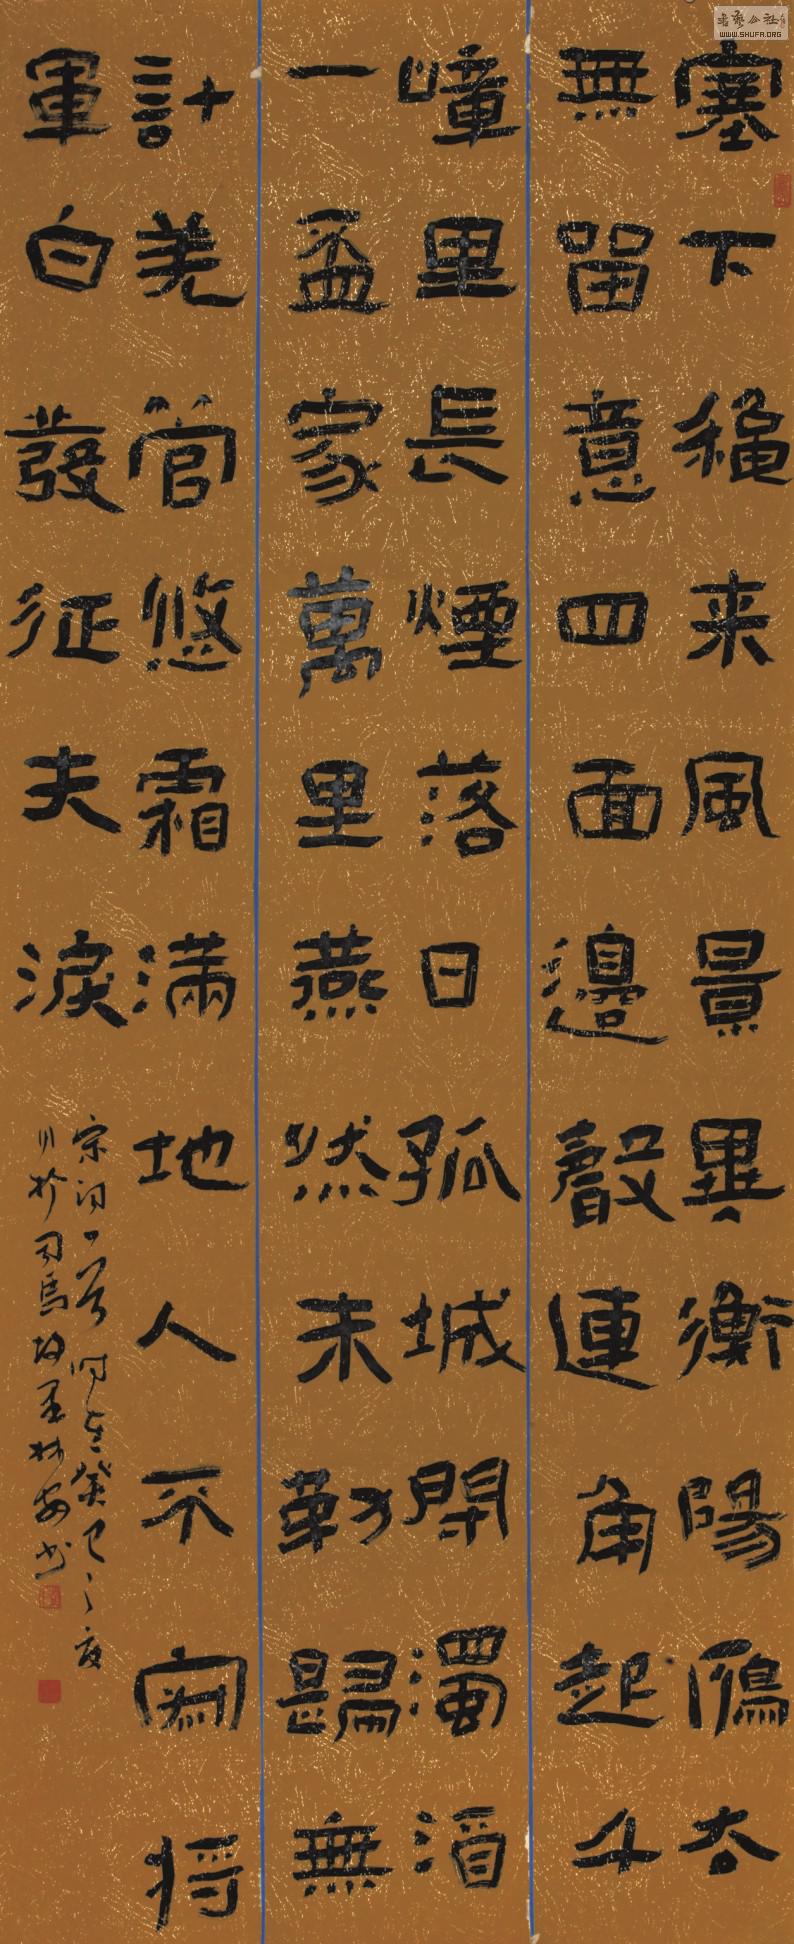 塞下龝来風景異衡陽鴈去
無留意四面邊聲連角起千
嶂里長煙落日孤城閉濁酒
一盃家萬里燕然未勒歸無
計羌管悠霜滿地人不寐將
軍白發征夫淚
宋词一首时在癸巳之夏
於司馬故里林安书
書藝公社
WWW.SHUFA.ORG